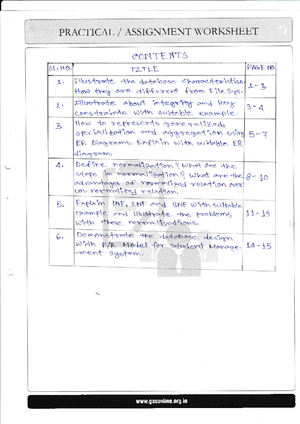 PRACTICAL / ASSIGNMENT WORKSHEET
CONTENTS
SL.NO. TITLE PAGE NO.
1. Illustrate the database characteristics. 1-3
How they are different from File Sys.
2. Illustrate about integrity and key 3-4
constraints with suitable example.
3. How to represents generalized, 5-7
specialization and aggregation using
ER Diagrams. Explain with suitable ER
diagram.
4. Define normalization? What are the 8-10
steps in normalization? What are the
advantages of normalized relation over
un normalized relation.
5. Explain 1NF, 2NF and 3NF with suitable 11-13
example and illustrate the problems
with these normalizations.
6. Demonstrate the database design 14-15
with E/R Model for Student Manage-
ment System.
www.gasonline.org.in